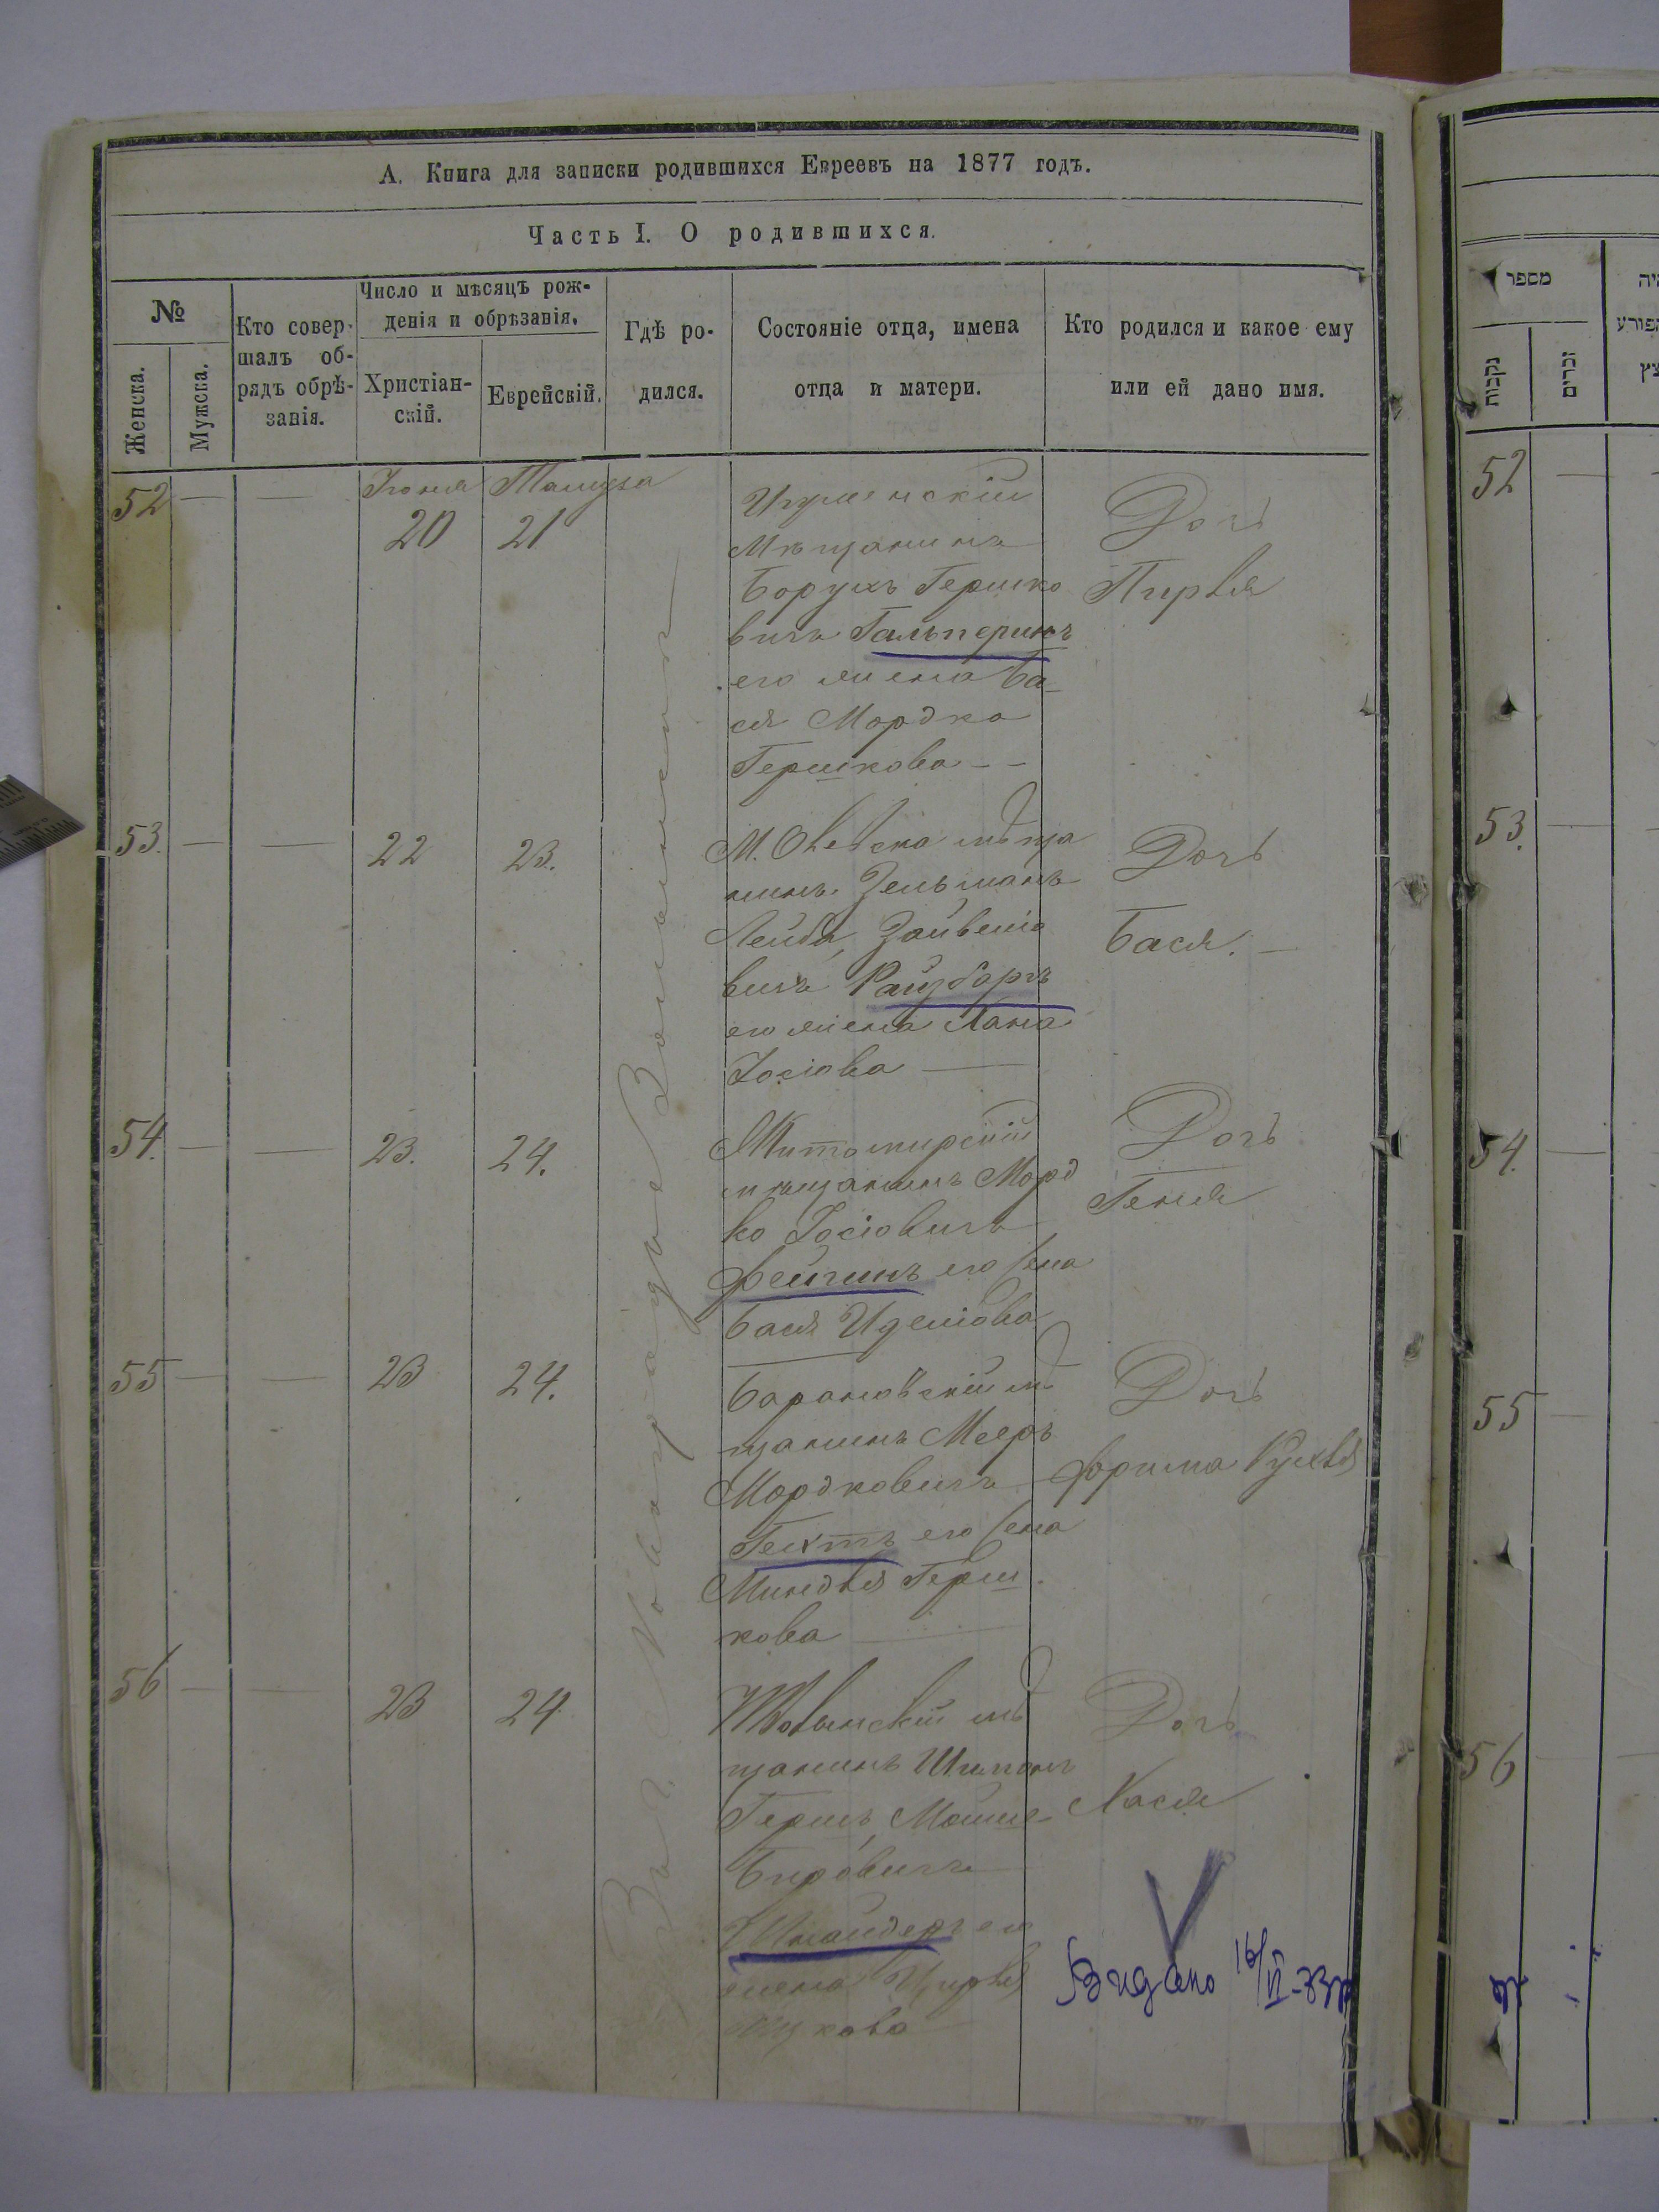 А. Книга для записки родившихся Евреевъ на 1877 годъ.
Часть I. О родившихся.
№
Женска.
Мужска.
Кто совер-
шалъ об-
рядъ обрѣ-
занія.
Число и мѣсяцъ рож-
денія и обрѣзанія.
Христіан-
скій.
Еврейскій.
Гдѣ ро-
дился.
Состояніе отца, имена
отца и матери.
Кто родился и какое ему
или ей дано имя.
52 — — Іюня Тамуза
20 21
Игуменскій
Мѣщанинъ
Борухъ Гершко
вичъ Гальперинъ
его жена Ба-
ся Мордко
Гершкова
Дочь
Пирля
53. — — 22 23.
М. Олевска мѣща
нинъ Зельманъ
Лейба
вичъ Райзбергъ
его жена Хана
Іосіова
Дочь
Бася. —
54. — — 23. 24.
Житомирскій
мѣщанинъ Морд
ко Іосіовичъ
Фейгинъ его жена
Бася
Дочь
Геня
55 — — 23 24.
Барановскій мѣ
щанинъ Мееръ
Мордковичъ
Гехтъ его жена
Миндля Герш
кова
Дочь
Фрима Рухля
56 — — 23 24
мѣ
щанинъ
Гершъ Мошие
Беровичъ
Шнайдеръ его
жена Цирля
Ицкова
Дочь
Хася
Видано 16/VI-83р
מספר
נקבות
זכרים
52 —
53. —
54. —
55 —
56 —